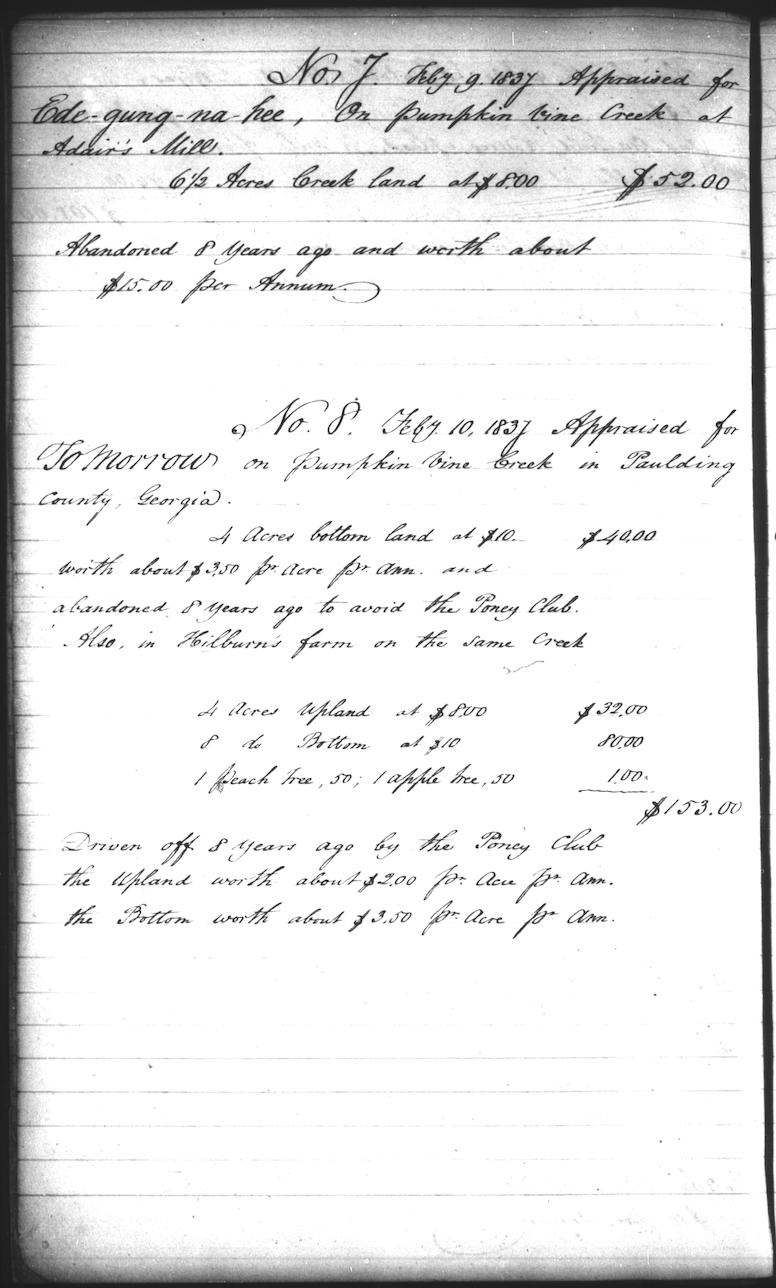 No. 7. Feby 9. 1837 Appraised for
Ede-gung-na-hee, On Pumpkin Vine Creek at
Adair's Mill.
6 1/2 Acres Creek land at $8.00 $52.00
Abandoned 8 Years ago and worth about
$15.00 per Annum.
No. 8. Feby. 10, 1837 Appraised for
ToMorrow on Pumpkin Vine Creek in Paulding
County, Georgia.
4 Acres bottom land at $10. $40.00
worth about $3.50 pr. Acre pr. Ann. and
abandoned 8 Years ago to avoid the Poney Club.
Also, in Hilburn's farm on the same Creek
4 Acres Upland at $8.00 $32.00
8 do Bottom at $10 80.00
1 Peach tree, 50; 1 apple tree, 50 1.00
$153.00
Driven off 8 Years ago by the Poney Club
the Upland worth about $2.00 pr. Acre pr. Ann.
the Bottom worth about $3.50 pr. Acre pr Ann.